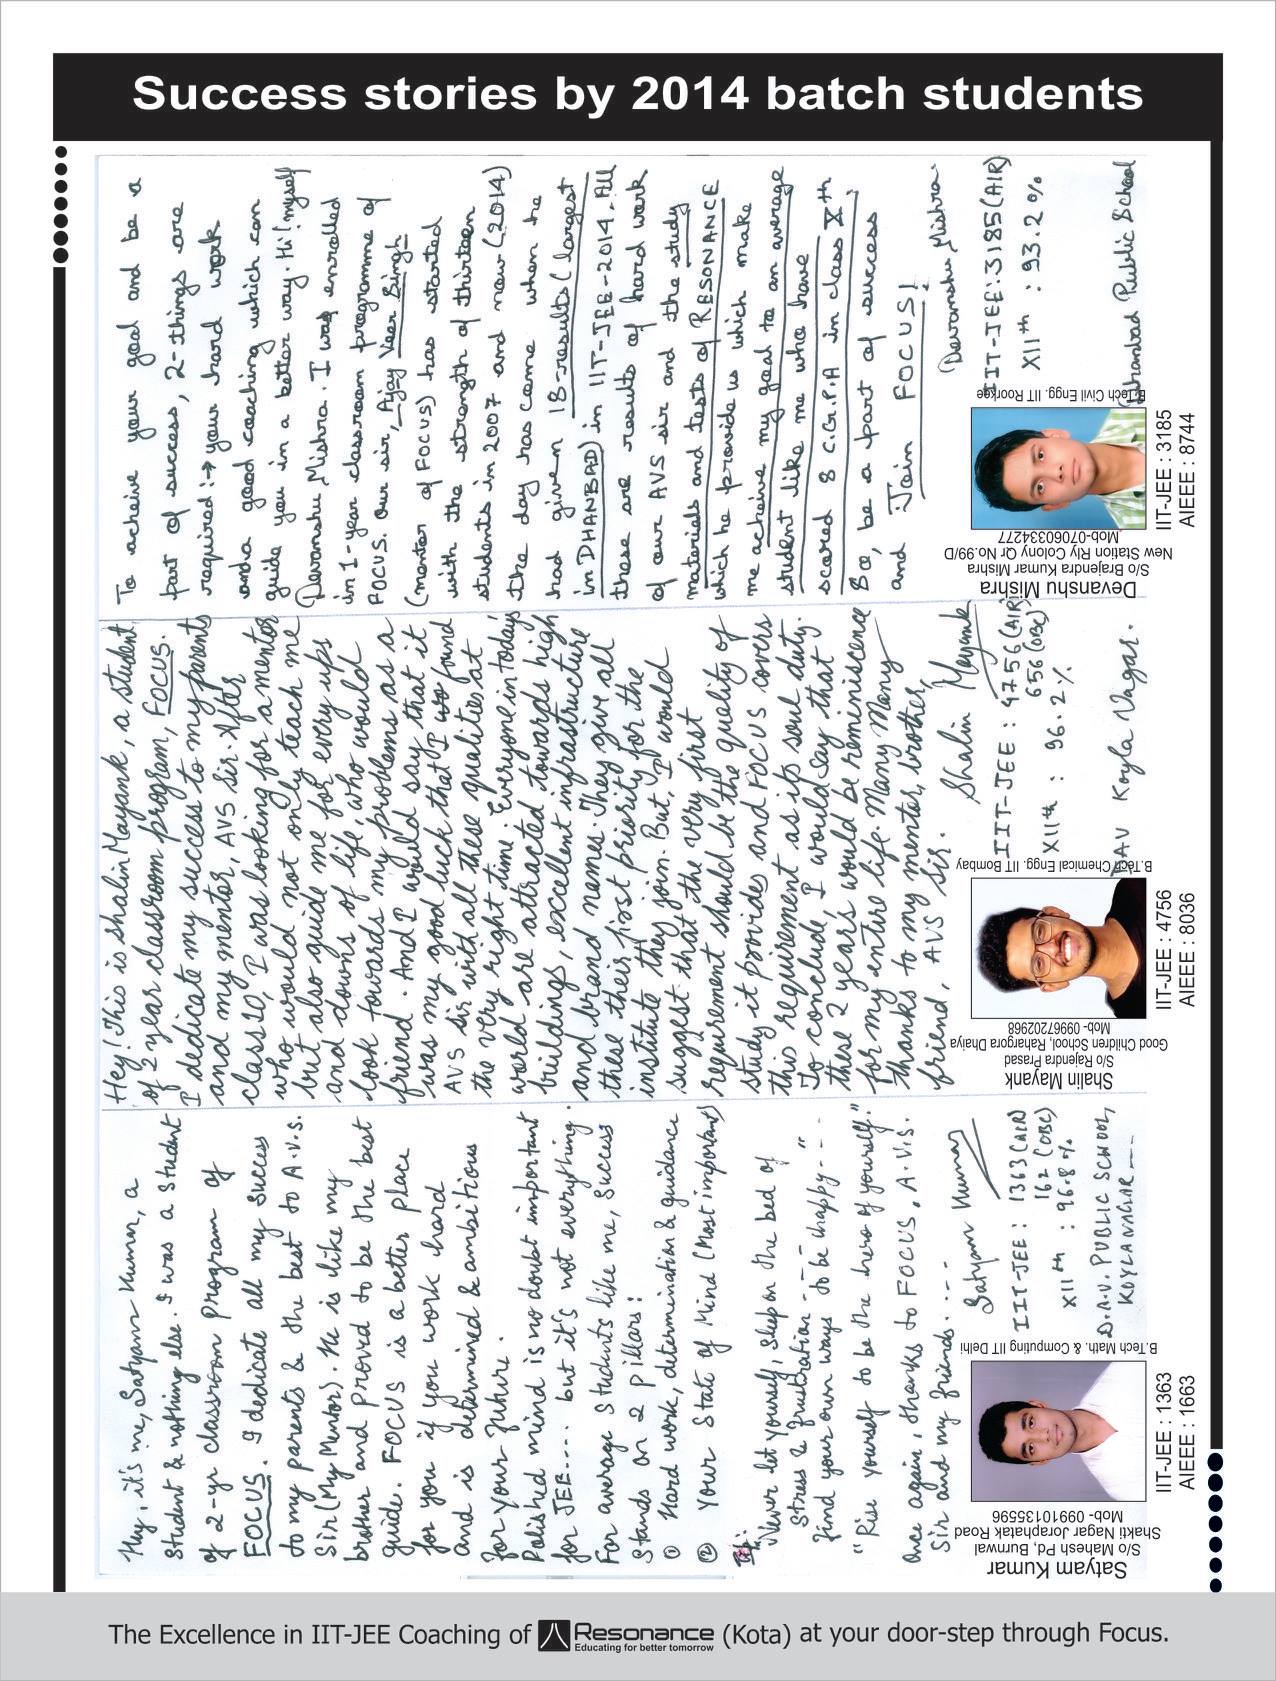 Success stories by 2014 batch students
Hey, it's me, Satyam Kumar, a
student & nothing else. I was a student
of 2-yr classroom program of
FOCUS. I dedicate all my success
to my parents & the best to A.V.S.
Sir (My Mentor). He is like my
brother and proved to be the best
guide. FOCUS is a better place
for you if you work hard
and is determined & ambitious
for your future.
Polished mind is no doubt important
for JEE... but it's not everything.
For average students like me, success
stands on 2 pillars:
① Hard work, determination & guidance
② Your State of Mind (Most important)
Never let yourself, sleep on the bed of
stress & frustration ---
find your own ways to be happy---"
"Rise yourself to be the hero of yourself."
Once again, thanks to FOCUS, A.V.S.
Sir and my friends.---
Satyam Kumar
IIT-JEE : 1363 (AIR)
162 (OBC)
XII th : 96.8 %
D.A.V. PUBLIC SCHOOL,
KOYLANAGAR ---
Satyam Kumar
S/o Mahesh Pd, Burnwal
Shakti Nagar Joraphatak Road
Mob- 09910135596
B.Tech Math. & Computing IIT Delhi
IIT-JEE : 1363
AIEEE : 1663
Hey! This is Shalin Mayank, a student
of 2 year classroom program, FOCUS.
I dedicate my success to my parents
and my mentor, AVS Sir. After
class 10, I was looking for a mentor
who would not only teach me
but also guide me for every ups
and downs of life, who would
look towards my problems as a
friend. And I would say that it
was my good luck that I found
AVS Sir with all these qualities at
the very right time. Everyone in today's
world are attracted towards high
buildings, excellent infrastructure
and brand names. They give all
these their first priority for the
institute they join. But, I would
suggest that the very first
requirement should be the quality of
study it provides and FOCUS covers
this requirement as its soul duty.
To conclude, I would say that
these 2 years would be reminiscence
for my entire life. Many Many
thanks to my mentor, brother,
friend, AVS Sir.
Shalin Mayank
IIT-JEE : 4756 (AIR)
656 (OBC)
XIIth : 96.2 %
DAV Koyla Nagar.
Shalin Mayank
S/o Rajendra Prasad
Good Children School, Rahargora Dhaiya
Mob- 09967202968
B.Tech Chemical Engg. IIT Bombay
IIT-JEE : 4756
AIEEE : 8036
To acheive your goal and be a
part of success, 2-things are
required :→ your hard work
and a good coaching which can
guide you in a better way. Hi! myself
Devanshu Mishra. I was enrolled
in 1-year classroom programme of
FOCUS. Our sir, Ajay Veer Singh
(mentor of FOCUS) has started
with the strength of thirteen
students in 2007 and now (2014)
the day has come when he
had given 18-results (largest
in DHANBAD) in IIT-JEE-2014. All
these are results of hard work
of our AVS sir and the study
materials and tests of RESONANCE
which he provide us which make
me acheive my goal to an average
student like me who have
scored 8 C.G.P.A in class Xth
So, be a part of success
and Join FOCUS!
Devanshu Mishra
IIT-JEE:3185 (AIR)
XII th : 93.2 %
Dhanbad Public School
Devanshu Mishra
S/o Brajendra Kumar Mishra
New Station Rly Colony Qr No.99/D
Mob-07060334277
B.Tech Civil Engg. IIT Roorkee
IIT-JEE : 3185
AIEEE : 8744
The Excellence in IIT-JEE Coaching of Resonance (Kota) at your door-step through Focus.
Educating for better tomorrow